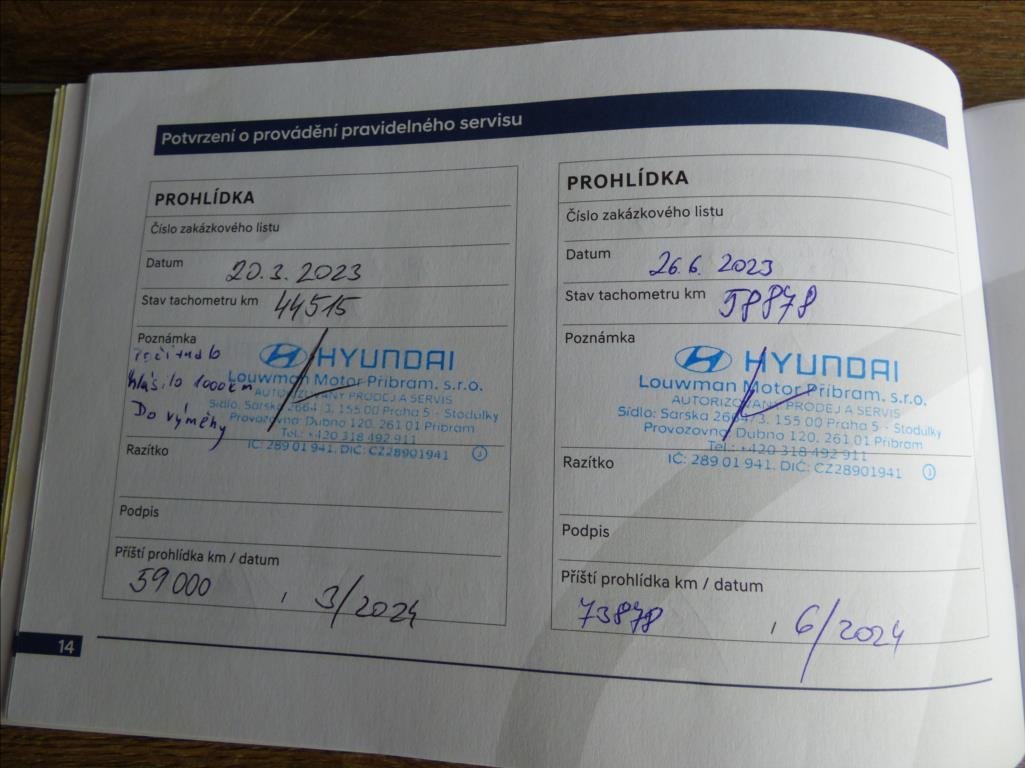 Potvrzení o provádění pravidelného servisu
PROHLÍDKA
Číslo zakázkového listu
Datum 20.3.2023
Stav tachometru km 44515
Poznámka
hlásilo 1000 km
Do výměhy
HYUNDAI
Louwman Motor Příbram, s.r.o.
AUTORIZOVANÝ PRODEJ A SERVIS
Sídlo: Sárská 2664/3, 155 00 Praha 5 - Stodůlky
Provozovna: Dubno 120, 261 01 Příbram
Tel.: +420 318 492 911
IČ: 289 01 941, DIČ: CZ28901941
Razítko
Podpis
Příští prohlídka km / datum
59000 , 3/2024
PROHLÍDKA
Číslo zakázkového listu
Datum 26.6. 2023
Stav tachometru km 58878
Poznámka
HYUNDAI
Louwman Motor Příbram, s.r.o.
AUTORIZOVANÝ PRODEJ A SERVIS
Sídlo: Sárská 2664/3, 155 00 Praha 5 - Stodůlky
Provozovna: Dubno 120, 261 01 Příbram
Tel.: +420 318 492 911
IČ: 289 01 941, DIČ: CZ28901941
Razítko
Podpis
Příští prohlídka km / datum
73878 , 6/2024
14